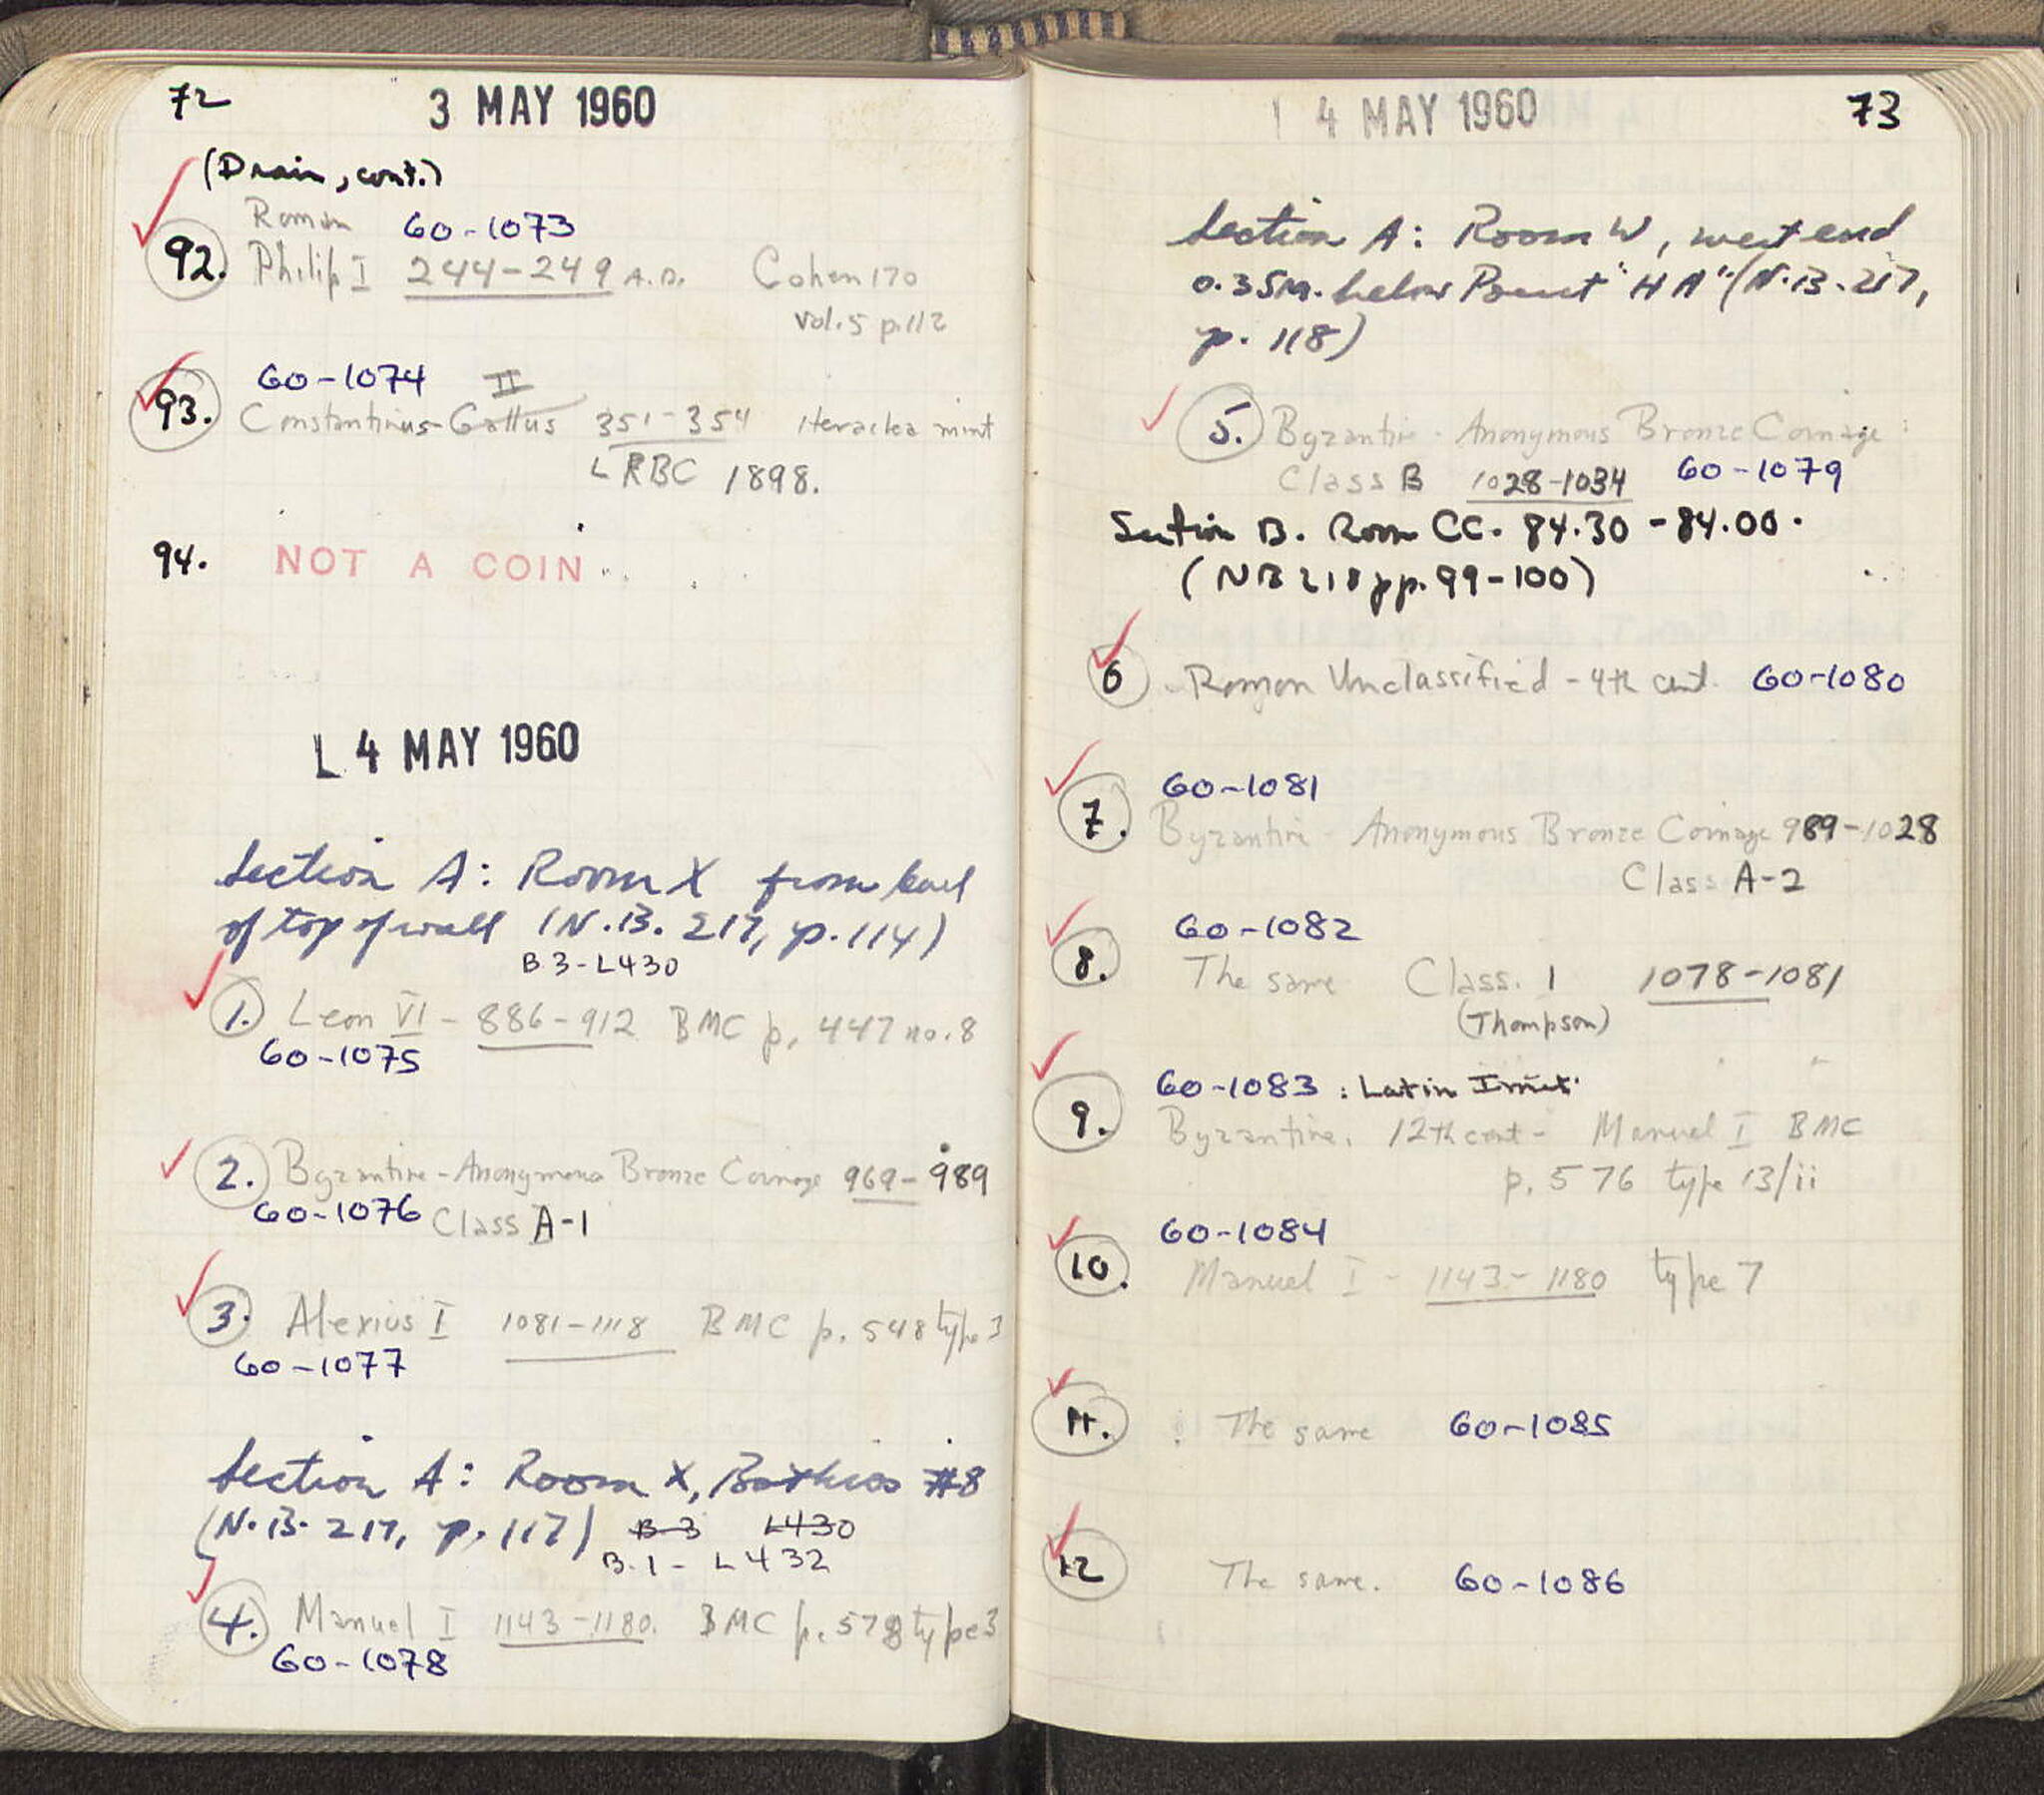 72
3 MAY 1960
(Drain, cont.)
Roman 60-1073
92. Philip I 244-249 A.D. Cohen 170
vol. 5 p. 112
60-1074 II
93. Constantius Gallus 351-354 Heraclea mint
LRBC 1898.
94. NOT A COIN
4 MAY 1960
Section A: Room X from level
of top of wall (N.B. 217, p. 114)
B3-L430
1. Leon VI - 886-912 BMC p. 447 no. 8
60-1075
2. Byzantine - Anonymous Bronze Coinage 969-989
60-1076 Class A-1
3. Alexius I 1081-1118 BMC p. 548 type 3
60-1077
Section A: Room X, Bothros #8
(N.B. 217, p. 117) B-3 L430
B.1- L432
4. Manuel I 1143-1180. BMC p. 578 type 3
60-1078
4 MAY 1960
73
Section A: Room W, west end
0.35m. below Point "HA" (N.B. 217,
p. 118)
5. Byzantine - Anonymous Bronze Coinage
Class B 1028-1034 60-1079
Section B. Room CC. 84.30 - 84.00.
(NB 218 pp. 99-100)
6 Roman Unclassified - 4th cent. 60-1080
60-1081
7. Byzantine - Anonymous Bronze Coinage 989-1028
Class A-2
60-1082
8. The same Class. I 1078-1081
(Thompson)
60-1083 : Latin Imit.
9. Byzantine. 12th cent - Manuel I BMC
p. 576 type 13/ii
60-1084
10. Manuel I - 1143-1180 type 7
11. The same 60-1085
12 The same. 60-1086